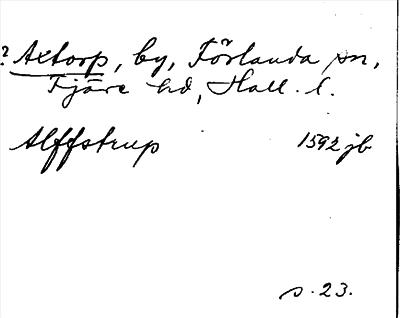 ? Axtorp, by, Förlanda sn,
Fjäre hd, Hall. l.
Alffstrup 1592 jb
s. 23.